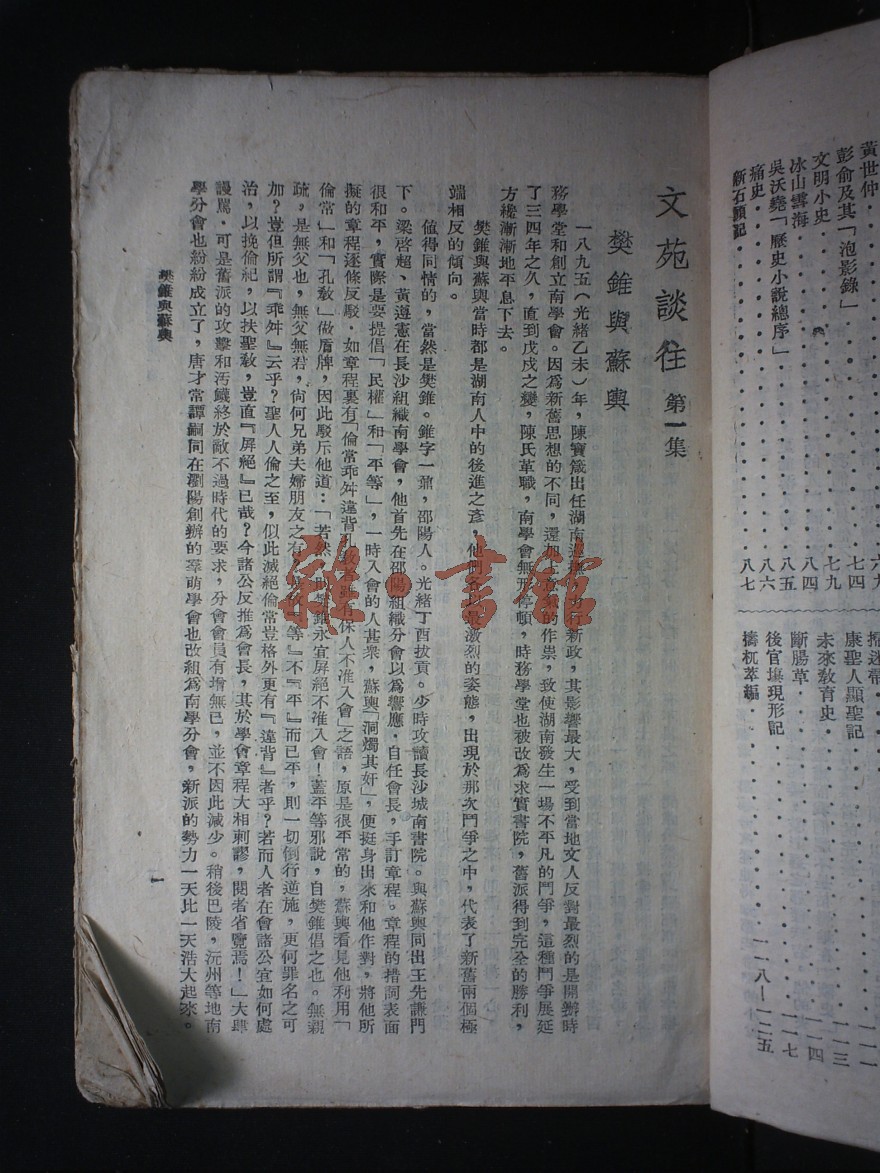 黃世仲
彭俞及其「泡影錄」・・・七四
文明小史・・・七九
冰山雪海・・・八四
吳沃堯「歷史小說總序」・・・八五
痛史・・・八六
新石頭記・・・八七
康聖人顯聖記・・・一一三
未來教育史・・・一一四
斷腸草・・・一一七
後官場現形記
檮杌萃編・・・一一八－一二五
文苑談往 第一集
樊錐與蘇輿
一八九五(光緒乙未)年，陳寶箴出任湖南巡撫，力行新政，其影響最大，受到當地文人反對最烈的是開辦時
務學堂和創立南學會。因爲新舊思想的不同，還加上意氣的作祟，致使湖南發生一場不平凡的鬥爭，這種鬥爭展延
了三四年之久，直到戊戌之變，陳氏革職，南學會無形停頓，時務學堂也被改爲求實書院，舊派得到完全的勝利，
方纔漸漸地平息下去。
樊錐與蘇輿當時都是湖南人中的後進之彥，他們各以最激烈的姿態，出現於那次鬥爭之中，代表了新舊兩個極
端相反的傾向。
值得同情的，當然是樊錐。錐字一鼐，邵陽人。光緒丁酉拔貢。少時攻讀長沙城南書院。與蘇輿同出王先謙門
下。梁啓超、黃遵憲在長沙組織南學會，他首先在邵陽組織分會以爲響應，自任會長，手訂章程。章程的措詞表面
很和平，實際是要提倡「民權」和「平等」，一時入會的人甚衆，蘇輿「洞燭其奸」，便挺身出來和他作對，將他所
擬的章程逐條反駁。如章程裏有「倫常乖舛違背孔教，雖有保人不准入會」之語，原是很平常的，蘇輿看見他利用「
倫常」和「孔教」做盾牌，因此駁斥他道：「若然，則樊錐永宜屏絕不准入會！蓋平等邪說，自樊錐倡之也。無親
疏，是無父也，無父無君，尙何兄弟夫婦朋友之有？是故『等』不『平』而已平，則一切倒行逆施，更何罪名之可
加？豈但所謂『乖舛』云乎？聖人人倫之至，似此滅絕倫常豈格外更有『違背』者乎？若而人者在會諸公宜如何處
治，以挽倫紀，以扶聖教，豈直『屏絕』已哉？今諸公反推爲會長，其於學會章程大相剌謬，閱者省覽焉！」大肆
謾罵。可是舊派的攻擊和汚衊終於敵不過時代的要求，分會會員有增無已，並不因此減少。稍後巴陵，沅州等地南
學分會也紛紛成立了，唐才常譚嗣同在瀏陽創辦的羣萌學會也改組爲南學分會，新派的勢力一天比一天浩大起來。
樊錐與蘇輿
一
雜・書館